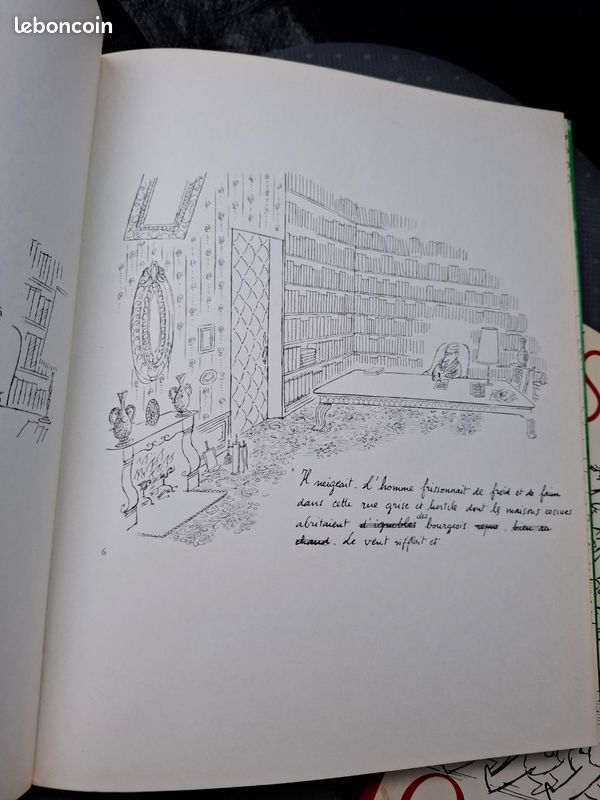 leboncoin
Il neigeait. L'homme frissonnait de froid et de faim
dans cette rue grise et hostile dont les maisons cossues
abritaient d'ignobles des bourgeois repus, bien au
chaud. Le vent sifflait et
6